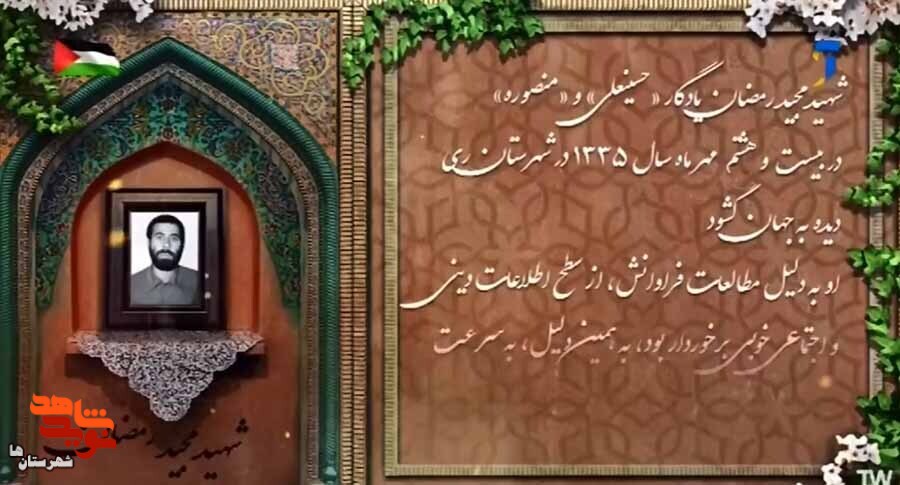 شهید مجید رمضان یادگار «حسینعلی» و «منصوره»
در بیست و هشتم مهر ماه سال ۱۳۳۵ در شهرستان ری
دیده به جهان گشود
او به دلیل مطالعات فراوانش، از سطح اطلاعات دینی
و اجتماعی خوبی برخوردار بود، به همین دلیل، به سرعت
شهید مجید رمضان
نوید شاهد
شهرستان ها
TW